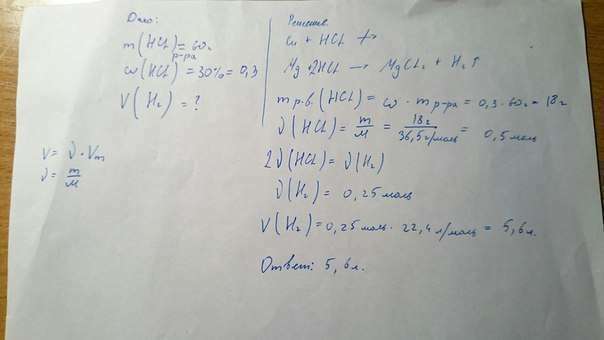 Дано:
m(HCl) = 60г
р-ра
ω(HCl) = 30% = 0,3
V(H₂) = ?
V = ν · Vm
ν = m/M
Решение
Cu + HCl ↛
Mg + 2HCl → MgCl₂ + H₂↑
m р.в. (HCl) = ω · m р-ра = 0,3 · 60г = 18г
ν(HCl) = m/M = 18г/36,5г/моль = 0,5 моль
2ν(HCl) = ν(H₂)
ν(H₂) = 0,25 моль
V(H₂) = 0,25 моль · 22,4 л/моль = 5,6л.
Ответ: 5,6л.